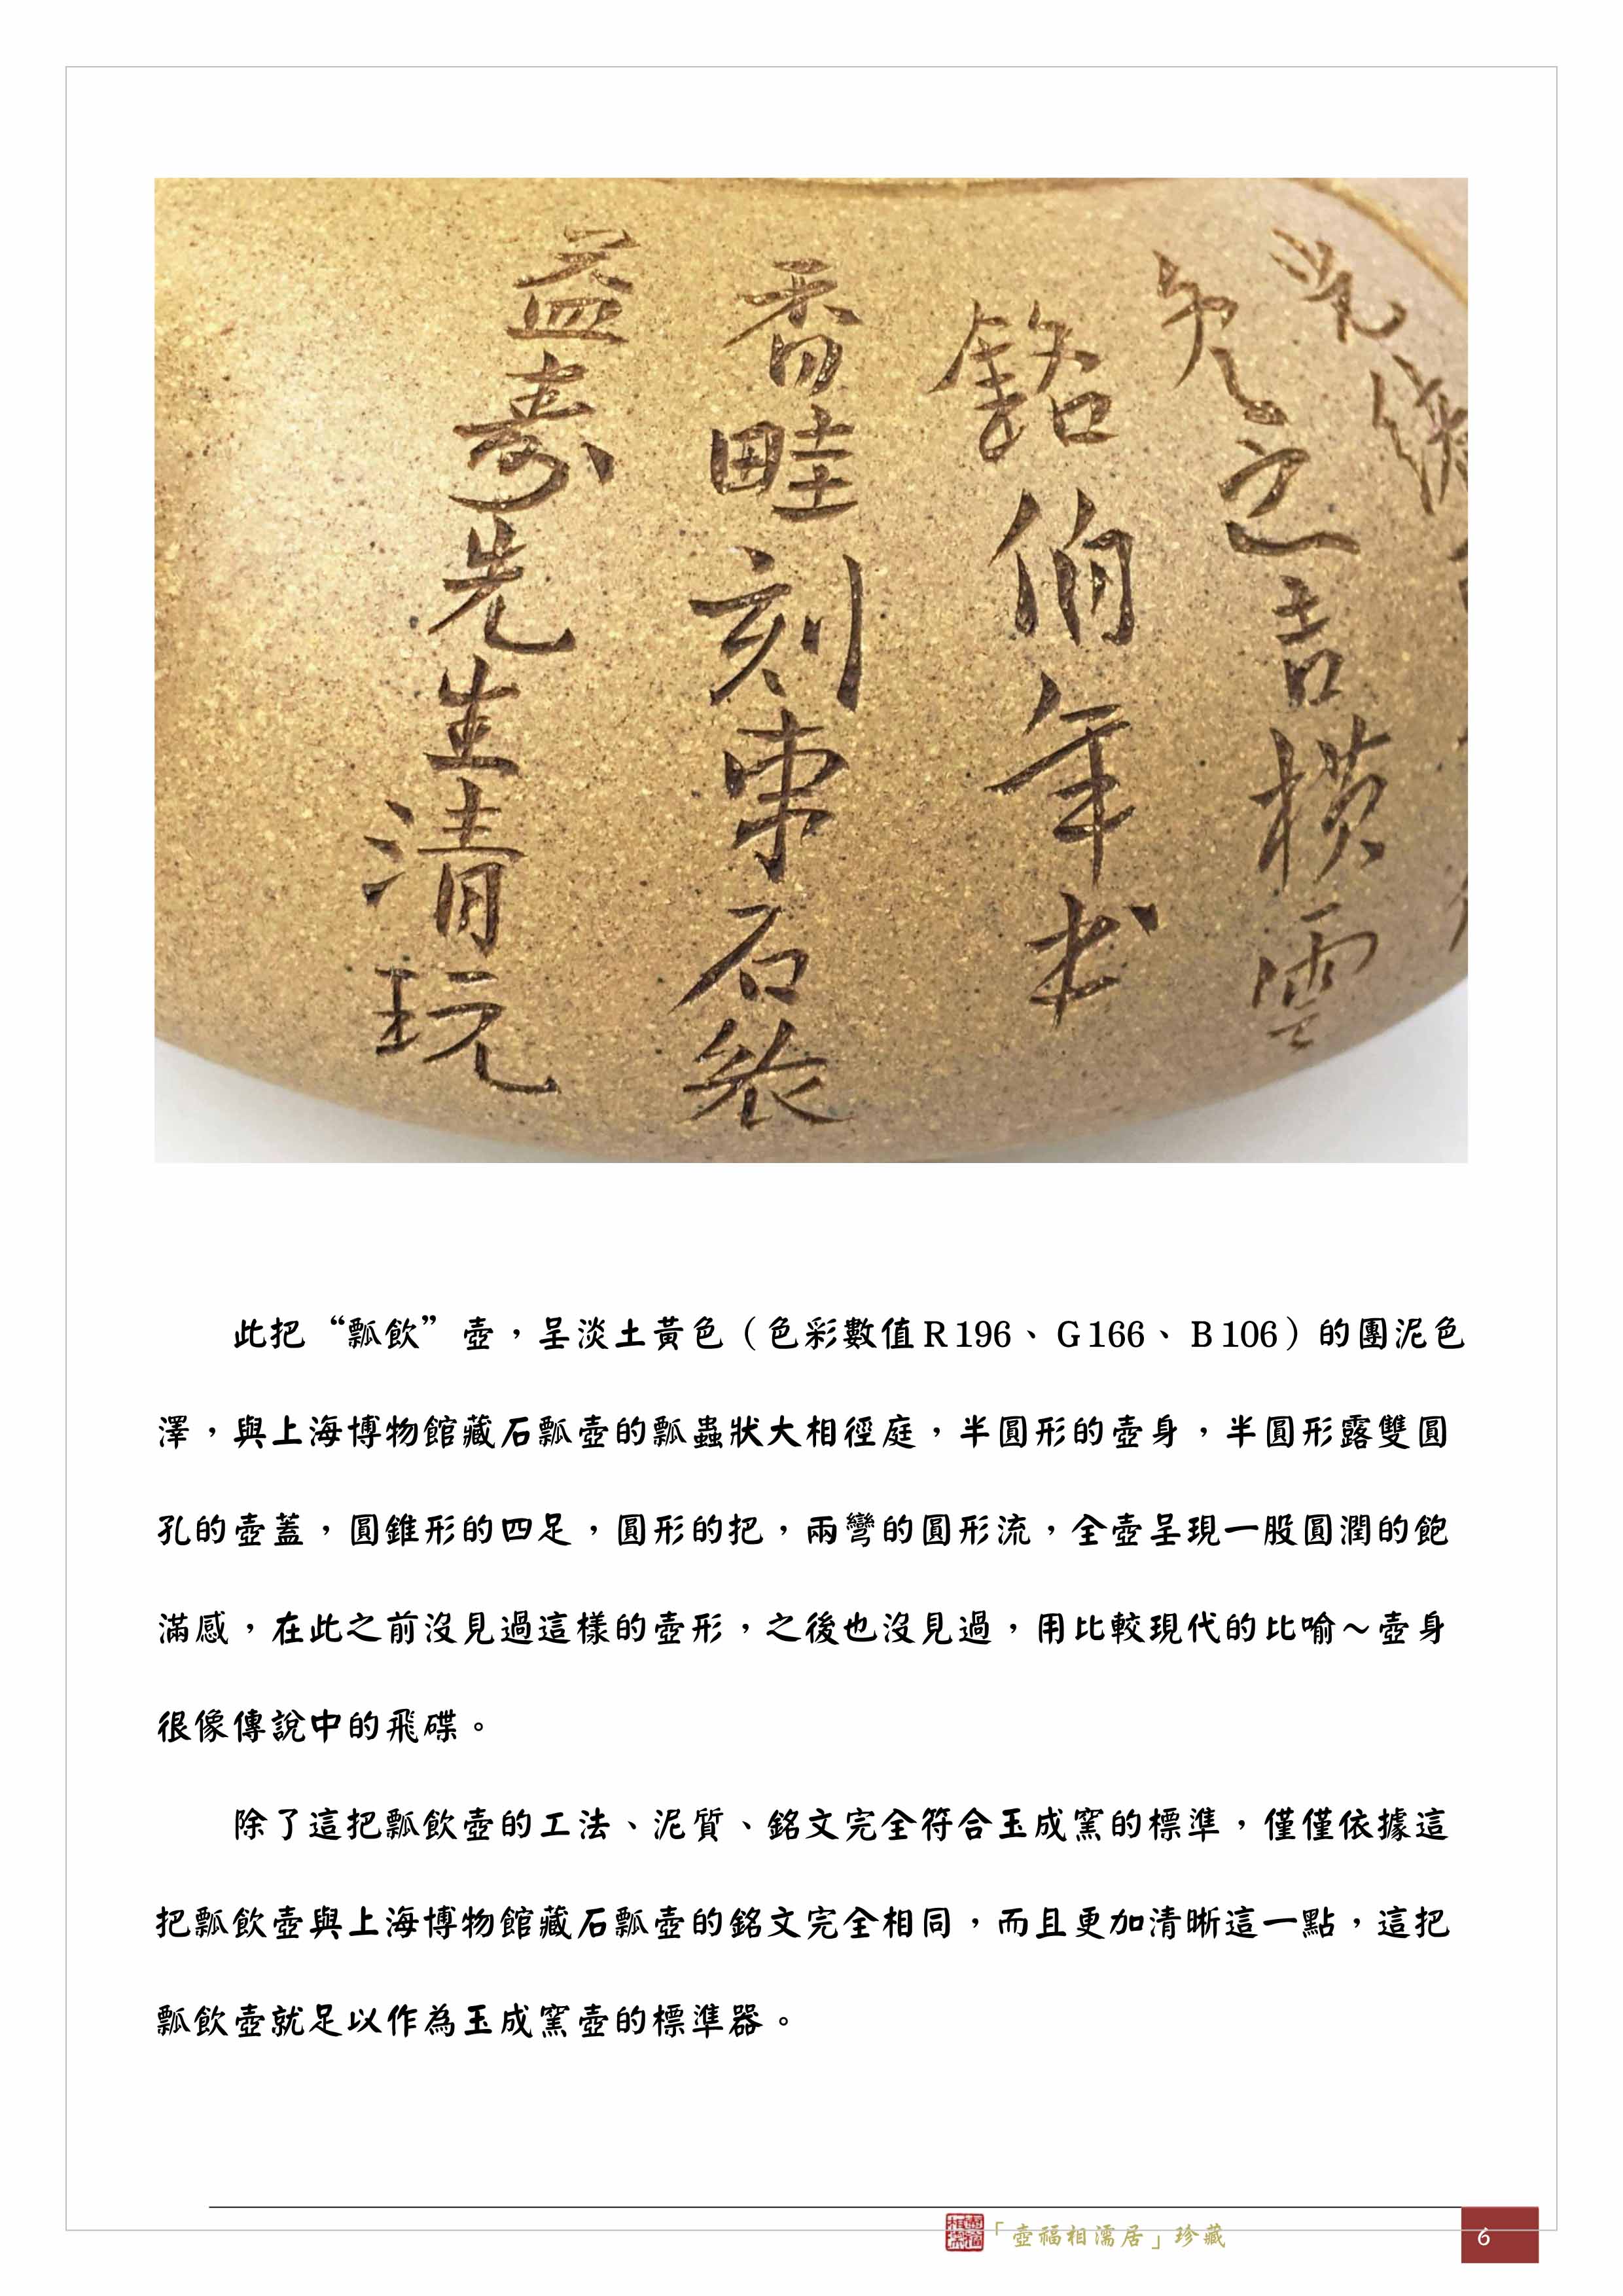 之吉橫雲
銘伯年書
香畦刻東石製
益壽先生清玩
此把“瓢飲”壺，呈淡土黃色（色彩數值R196、G166、B106）的團泥色
澤，與上海博物館藏石瓢壺的瓢蟲狀大相徑庭，半圓形的壺身，半圓形露雙圓
孔的壺蓋，圓錐形的四足，圓形的把，兩彎的圓形流，全壺呈現一股圓潤的飽
滿感，在此之前沒見過這樣的壺形，之後也沒見過，用比較現代的比喻～壺身
很像傳說中的飛碟。
除了這把瓢飲壺的工法、泥質、銘文完全符合玉成窯的標準，僅僅依據這
把瓢飲壺與上海博物館藏石瓢壺的銘文完全相同，而且更加清晰這一點，這把
瓢飲壺就足以作為玉成窯壺的標準器。
「壺福相濡居」珍藏
6